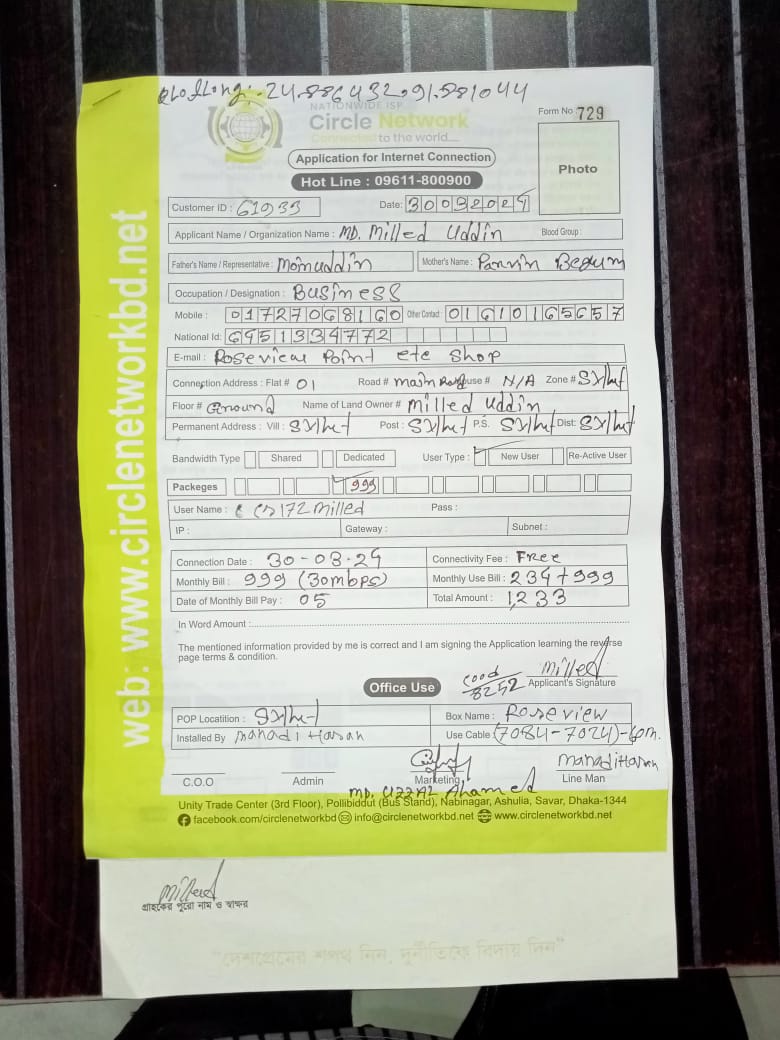 24.886432,91.881044
NATIONWIDE ISP
Circle Network
Connected to the world....
Form No 729
Application for Internet Connection
Photo
Hot Line : 09611-800900
Customer ID : 61933 Date: 30032024
Applicant Name / Organization Name : MD. Milled Uddin Blood Group :
Father's Name / Representative : Momuddin Mother's Name : Parvin Begum
Occupation / Designation : Business
Mobile : 01727068160 Other Contact: 01610165657
National Id: 6451334772
E-mail : Roseview Point ete Shop
Connection Address : Flat # 01 Road # main Road House # N/A Zone # Sylhet
Floor # Ground Name of Land Owner # Milled Uddin
Permanent Address : Vill : Sylhet Post : Sylhet P.S. Sylhet Dist: Sylhet
Bandwidth Type Shared Dedicated User Type : New User Re-Active User
Packeges 999
User Name : 172 milled Pass :
IP : Gateway : Subnet :
Connection Date : 30-03-24 Connectivity Fee : Free
Monthly Bill : 999 (30mbps) Monthly Use Bill : 234+999
Date of Monthly Bill Pay : 05 Total Amount : 1,233
In Word Amount :
The mentioned information provided by me is correct and I am signing the Application learning the reverse
page terms & condition.
Milled
Office Use
8252
Applicant's Signature
POP Locatition : Sylhet Box Name : Roseview
Installed By Mahadi Hasan Use Cable (7084-7024)-60m.
Mahadi Hasan
C.O.O Admin Marketing Line Man
MD. UZZAL Ahamed
Unity Trade Center (3rd Floor), Pollibiddut (Bus Stand), Nabinagar, Ashulia, Savar, Dhaka-1344
facebook.com/circlenetworkbd info@circlenetworkbd.net www.circlenetworkbd.net
web: www.circlenetworkbd.net
Milled
গ্রাহকের পুরো নাম ও স্বাক্ষর
"দেশপ্রেমের শপথ নিন, দুর্নীতিকে বিদায় দিন"